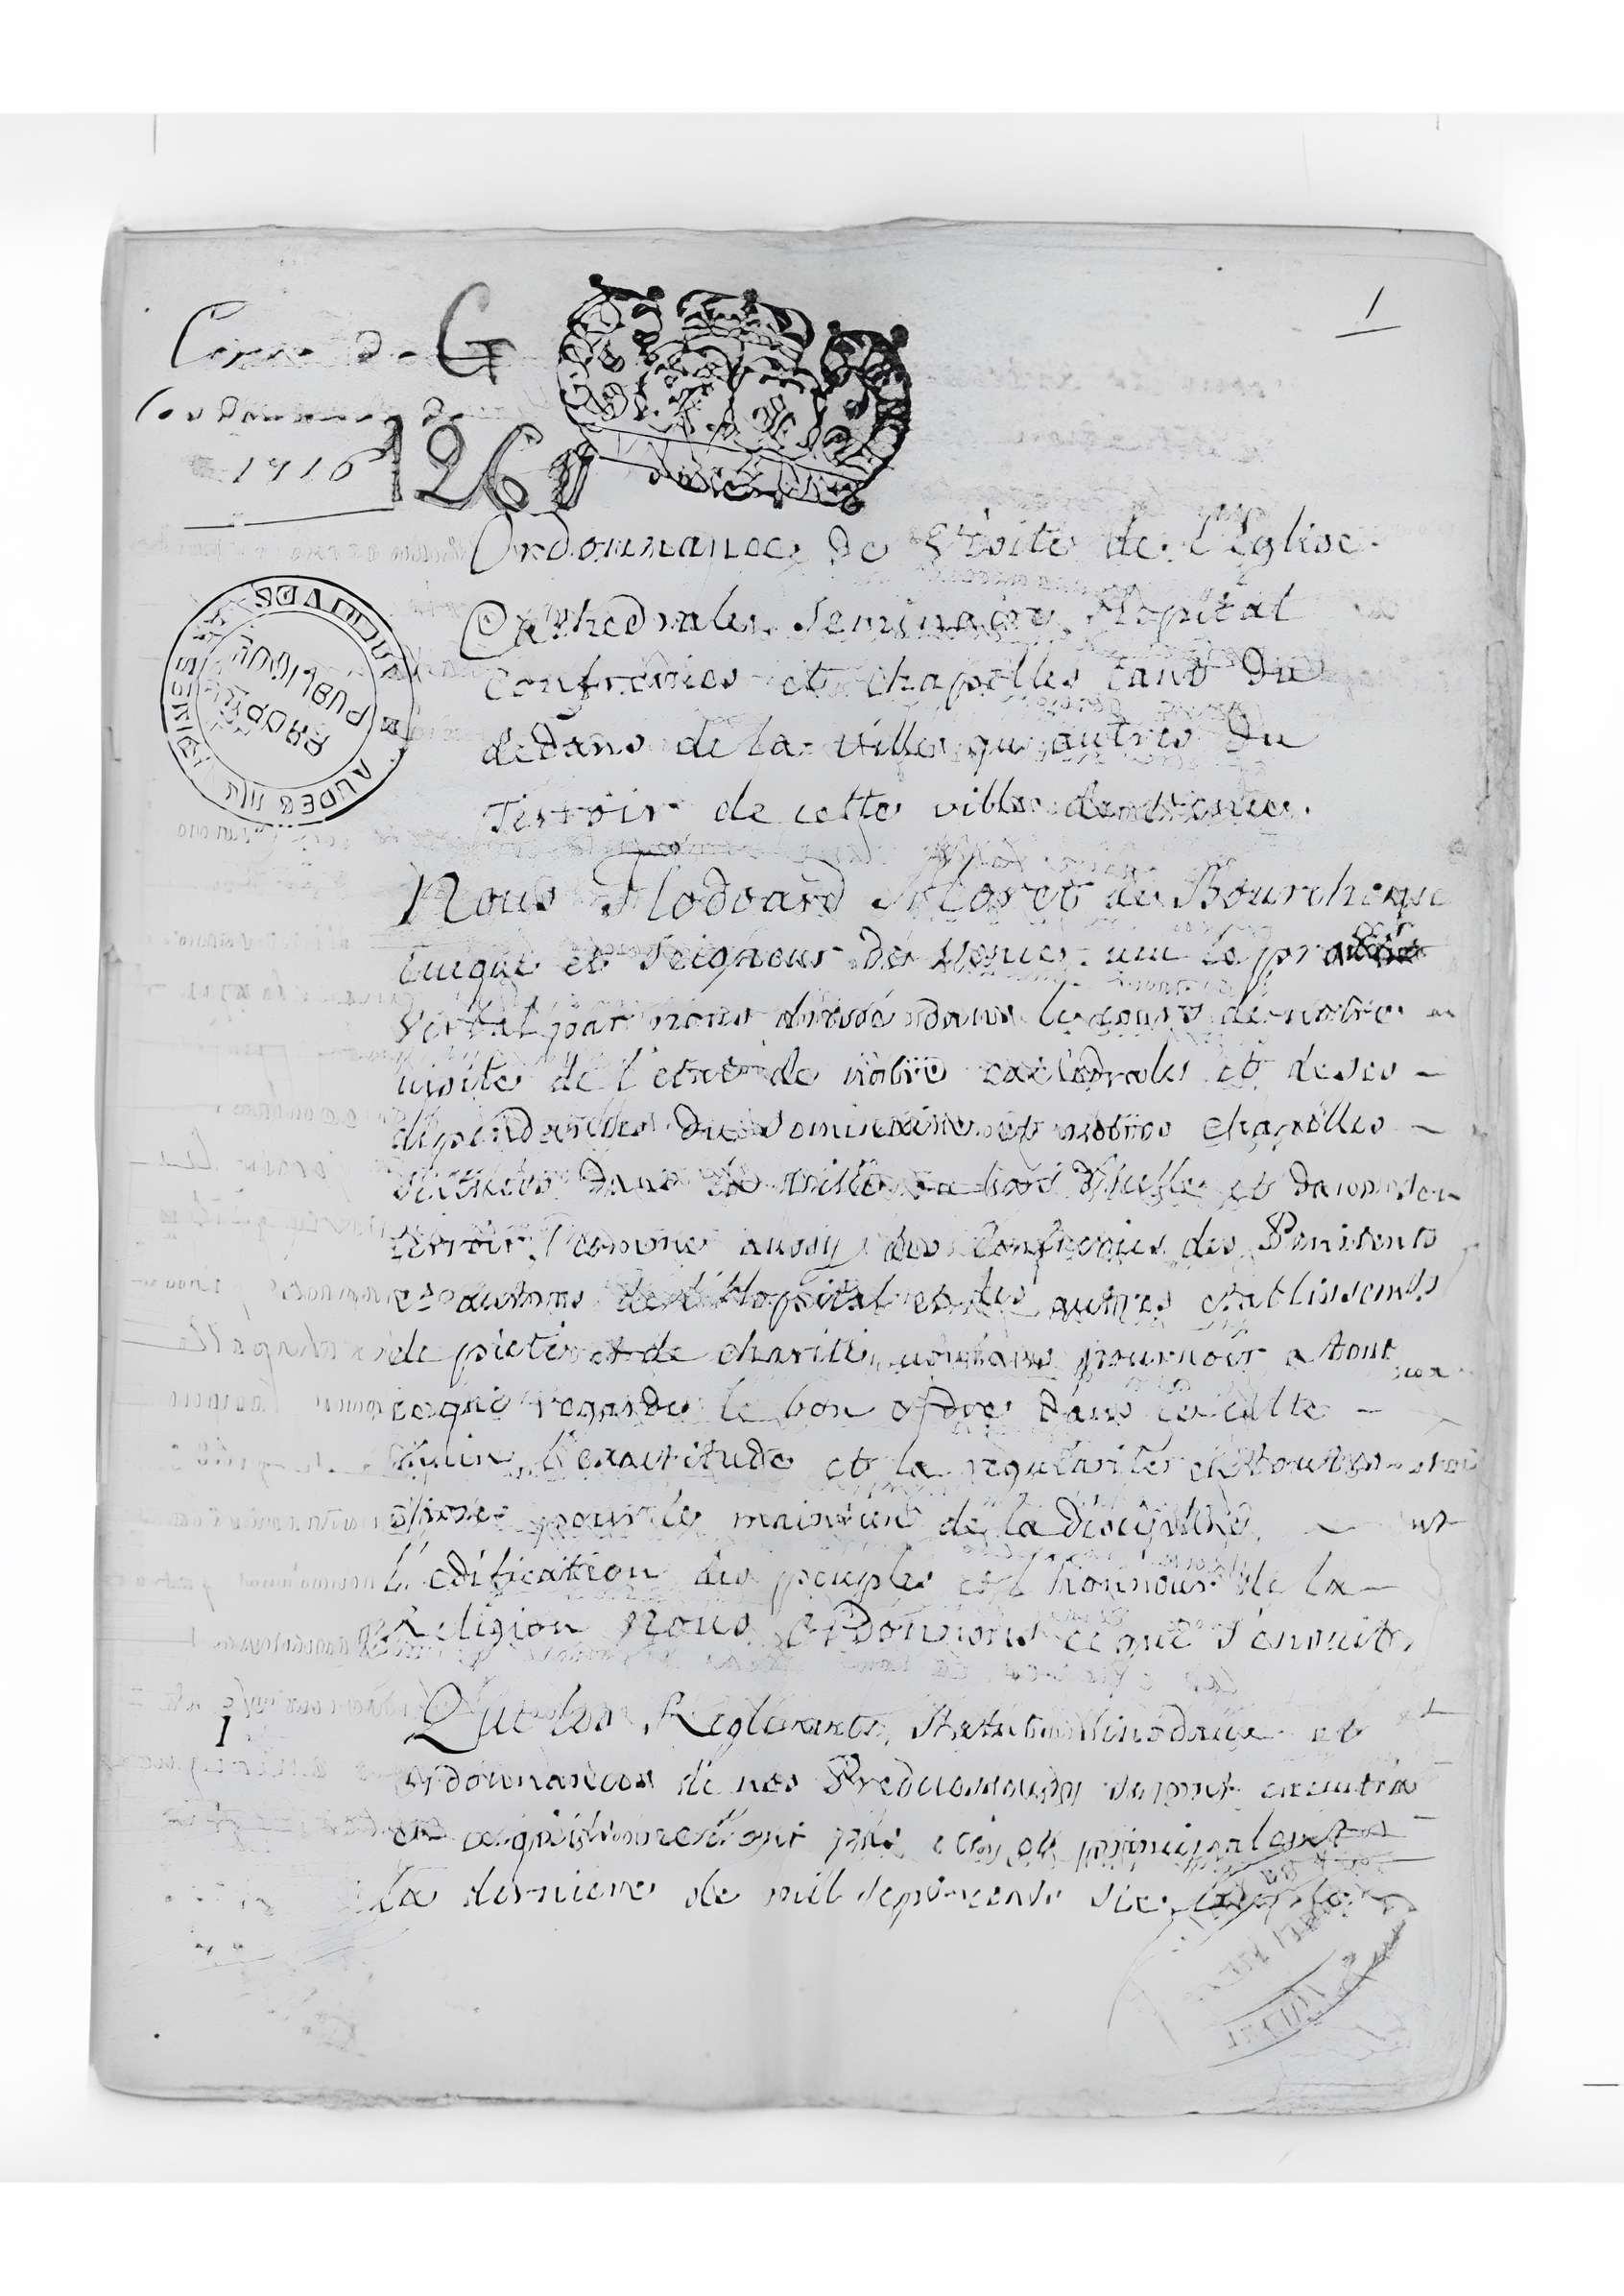 G
1
1260
1716
Ordonnance de Visite de l'Eglise
Cathedrale, Seminaire, Hopital
Confreries et chapelles tant du
dedans de la ville qu'autres du
Terroir de cette ville de Vence.
ARCHIVES
PROPRIÉTÉ
PUBLIQUE
Nous Flodoard Moret de Bourchenu
Evêque et Seigneur de Vence. veu le procés
Verbal par nous dressé dans le cours de notre
visite de l'etat de notre cathedrale et de ses
dependances du Seminaire et autres chapelles
situées dans la ville et dans son
terroir, comme aussy des Confreries des Penitents
et autres de l'Hopital et des autres etablissemts
de pieté et de charité, voulant pourvoir a tout
ce qui regarde le bon ordre dans le culte
divin, l'exactitude et la regularité en toutes
choses pour le maintien de la discipline,
L'edification des peuples et l'honneur de la
Religion Nous Ordonnons ce que s'ensuit.
1
Que les Reglements, Statuts Sinodaux et
ordonnances de nos Predecesseurs seront executés
et principalemt
la derniere de mil sept cents six